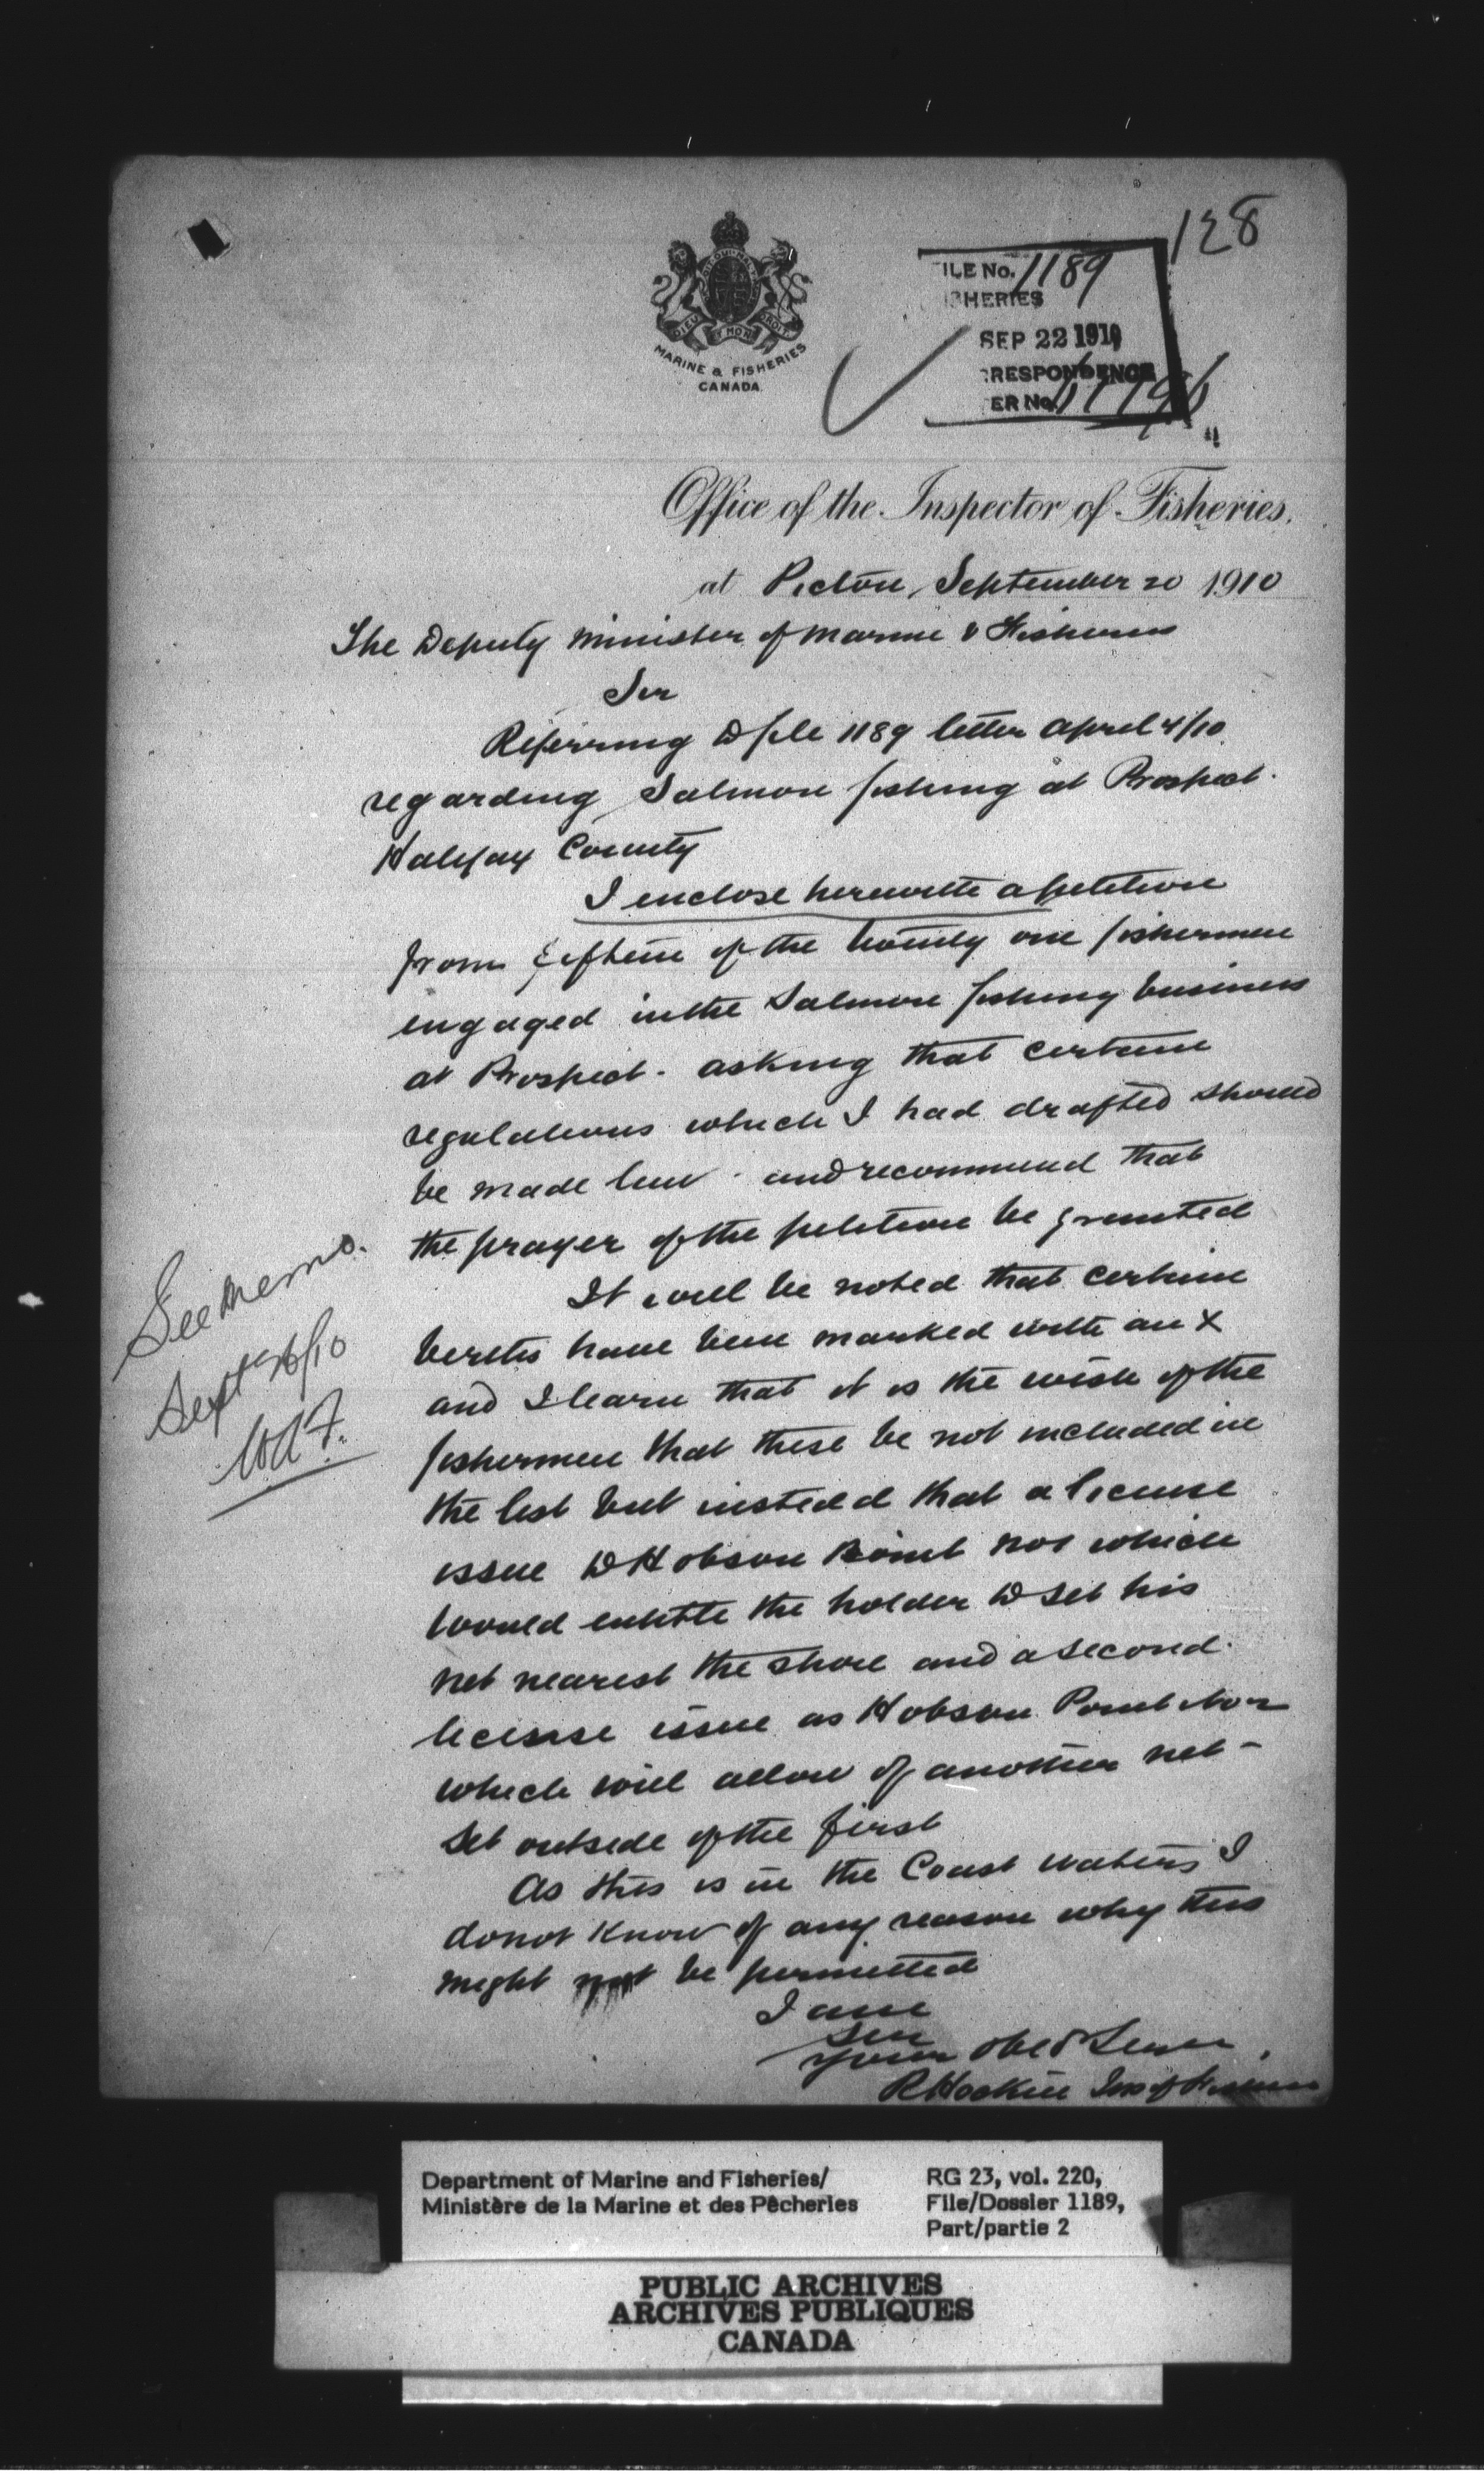 128
DIEU ET MON DROIT
MARINE & FISHERIES
CANADA
ILE No. 1189
SHERIES
SEP 22 1910
RESPONDENCE
ER No.
Office of the Inspector of Fisheries.
at Pictou, September 20 1910
The Deputy Minister of Marine & Fisheries
Sir
Referring to file 1189 letter April 4/10
regarding Salmon fishing at Prospect.
Halifax County
I enclose herewith a petition
from fifteen of the twenty one fishermen
engaged in the Salmon fishing business
at Prospect - asking that certain
regulations which I had drafted should
be made law - and recommend that
the prayer of the petition be granted
It will be noted that certain
berths have been marked with an X
and I learn that it is the wish of the
fishermen that these be not included in
the list but instead that a license
issue to Hobson Point No 1 which
would entitle the holder to set his
net nearest the shore and a second
license issue as Hobson Point No 2
which will allow of another net -
set outside of the first
As this is in the Coast waters I
do not know of any reason why this
might not be permitted
I am
Sir
Your obed Serv
R Hockin Ins of Fisheries
See memo.
Sept 26/10
Department of Marine and Fisheries/
Ministère de la Marine et des Pêcheries
RG 23, vol. 220,
File/Dossier 1189,
Part/partie 2
PUBLIC ARCHIVES
ARCHIVES PUBLIQUES
CANADA